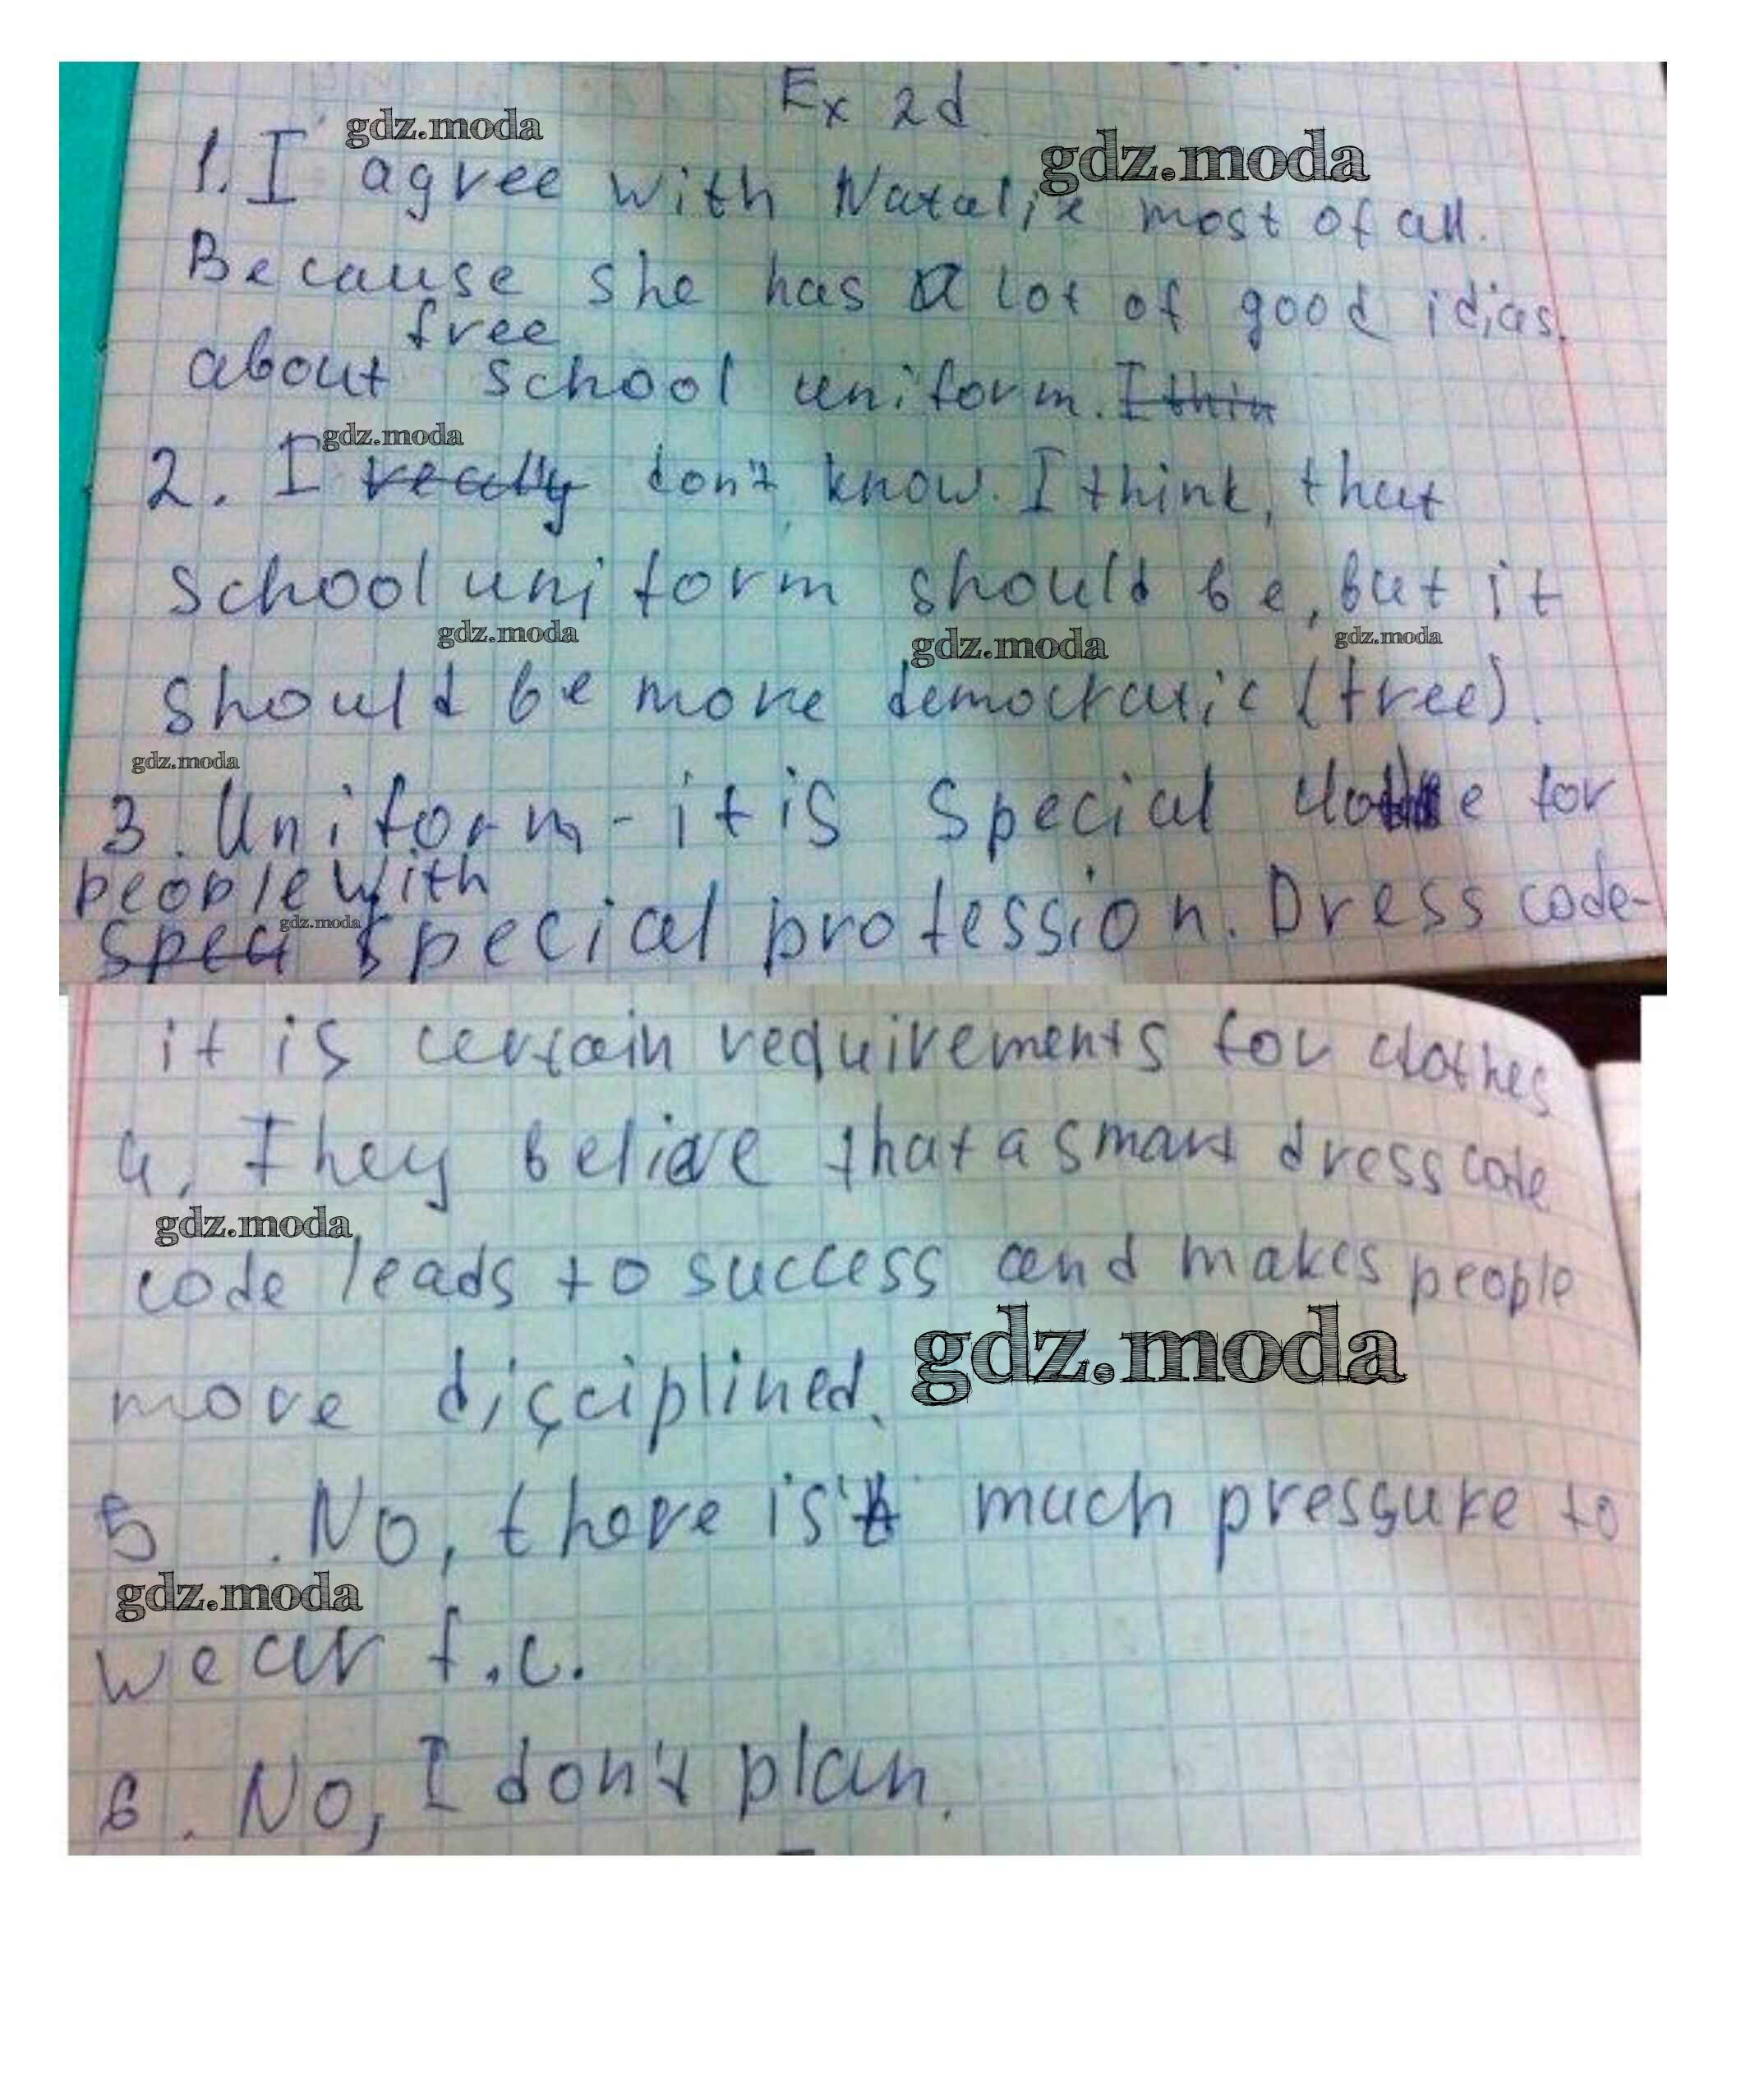 Ex 2d
1. I agree with Natalie most of all.
Because she has a lot of good idias.
free
about school uniform. I thin
2. I really don't know. I think, that
school uniform should be, but it
should be more democratic (free).
3. Uniform - it is special clothe for
people with
speci special profession. Dress code-
it is certain requirements for clothes
4. They belive that a smart dress code
code leads to success and makes people
more disciplined.
5. No, there is't much pressure to
wear f.c.
6. No, I don't plan.
gdz.moda
gdz.moda
gdz.moda
gdz.moda
gdz.moda
gdz.moda
gdz.moda
gdz.moda
gdz.moda
gdz.moda
gdz.moda